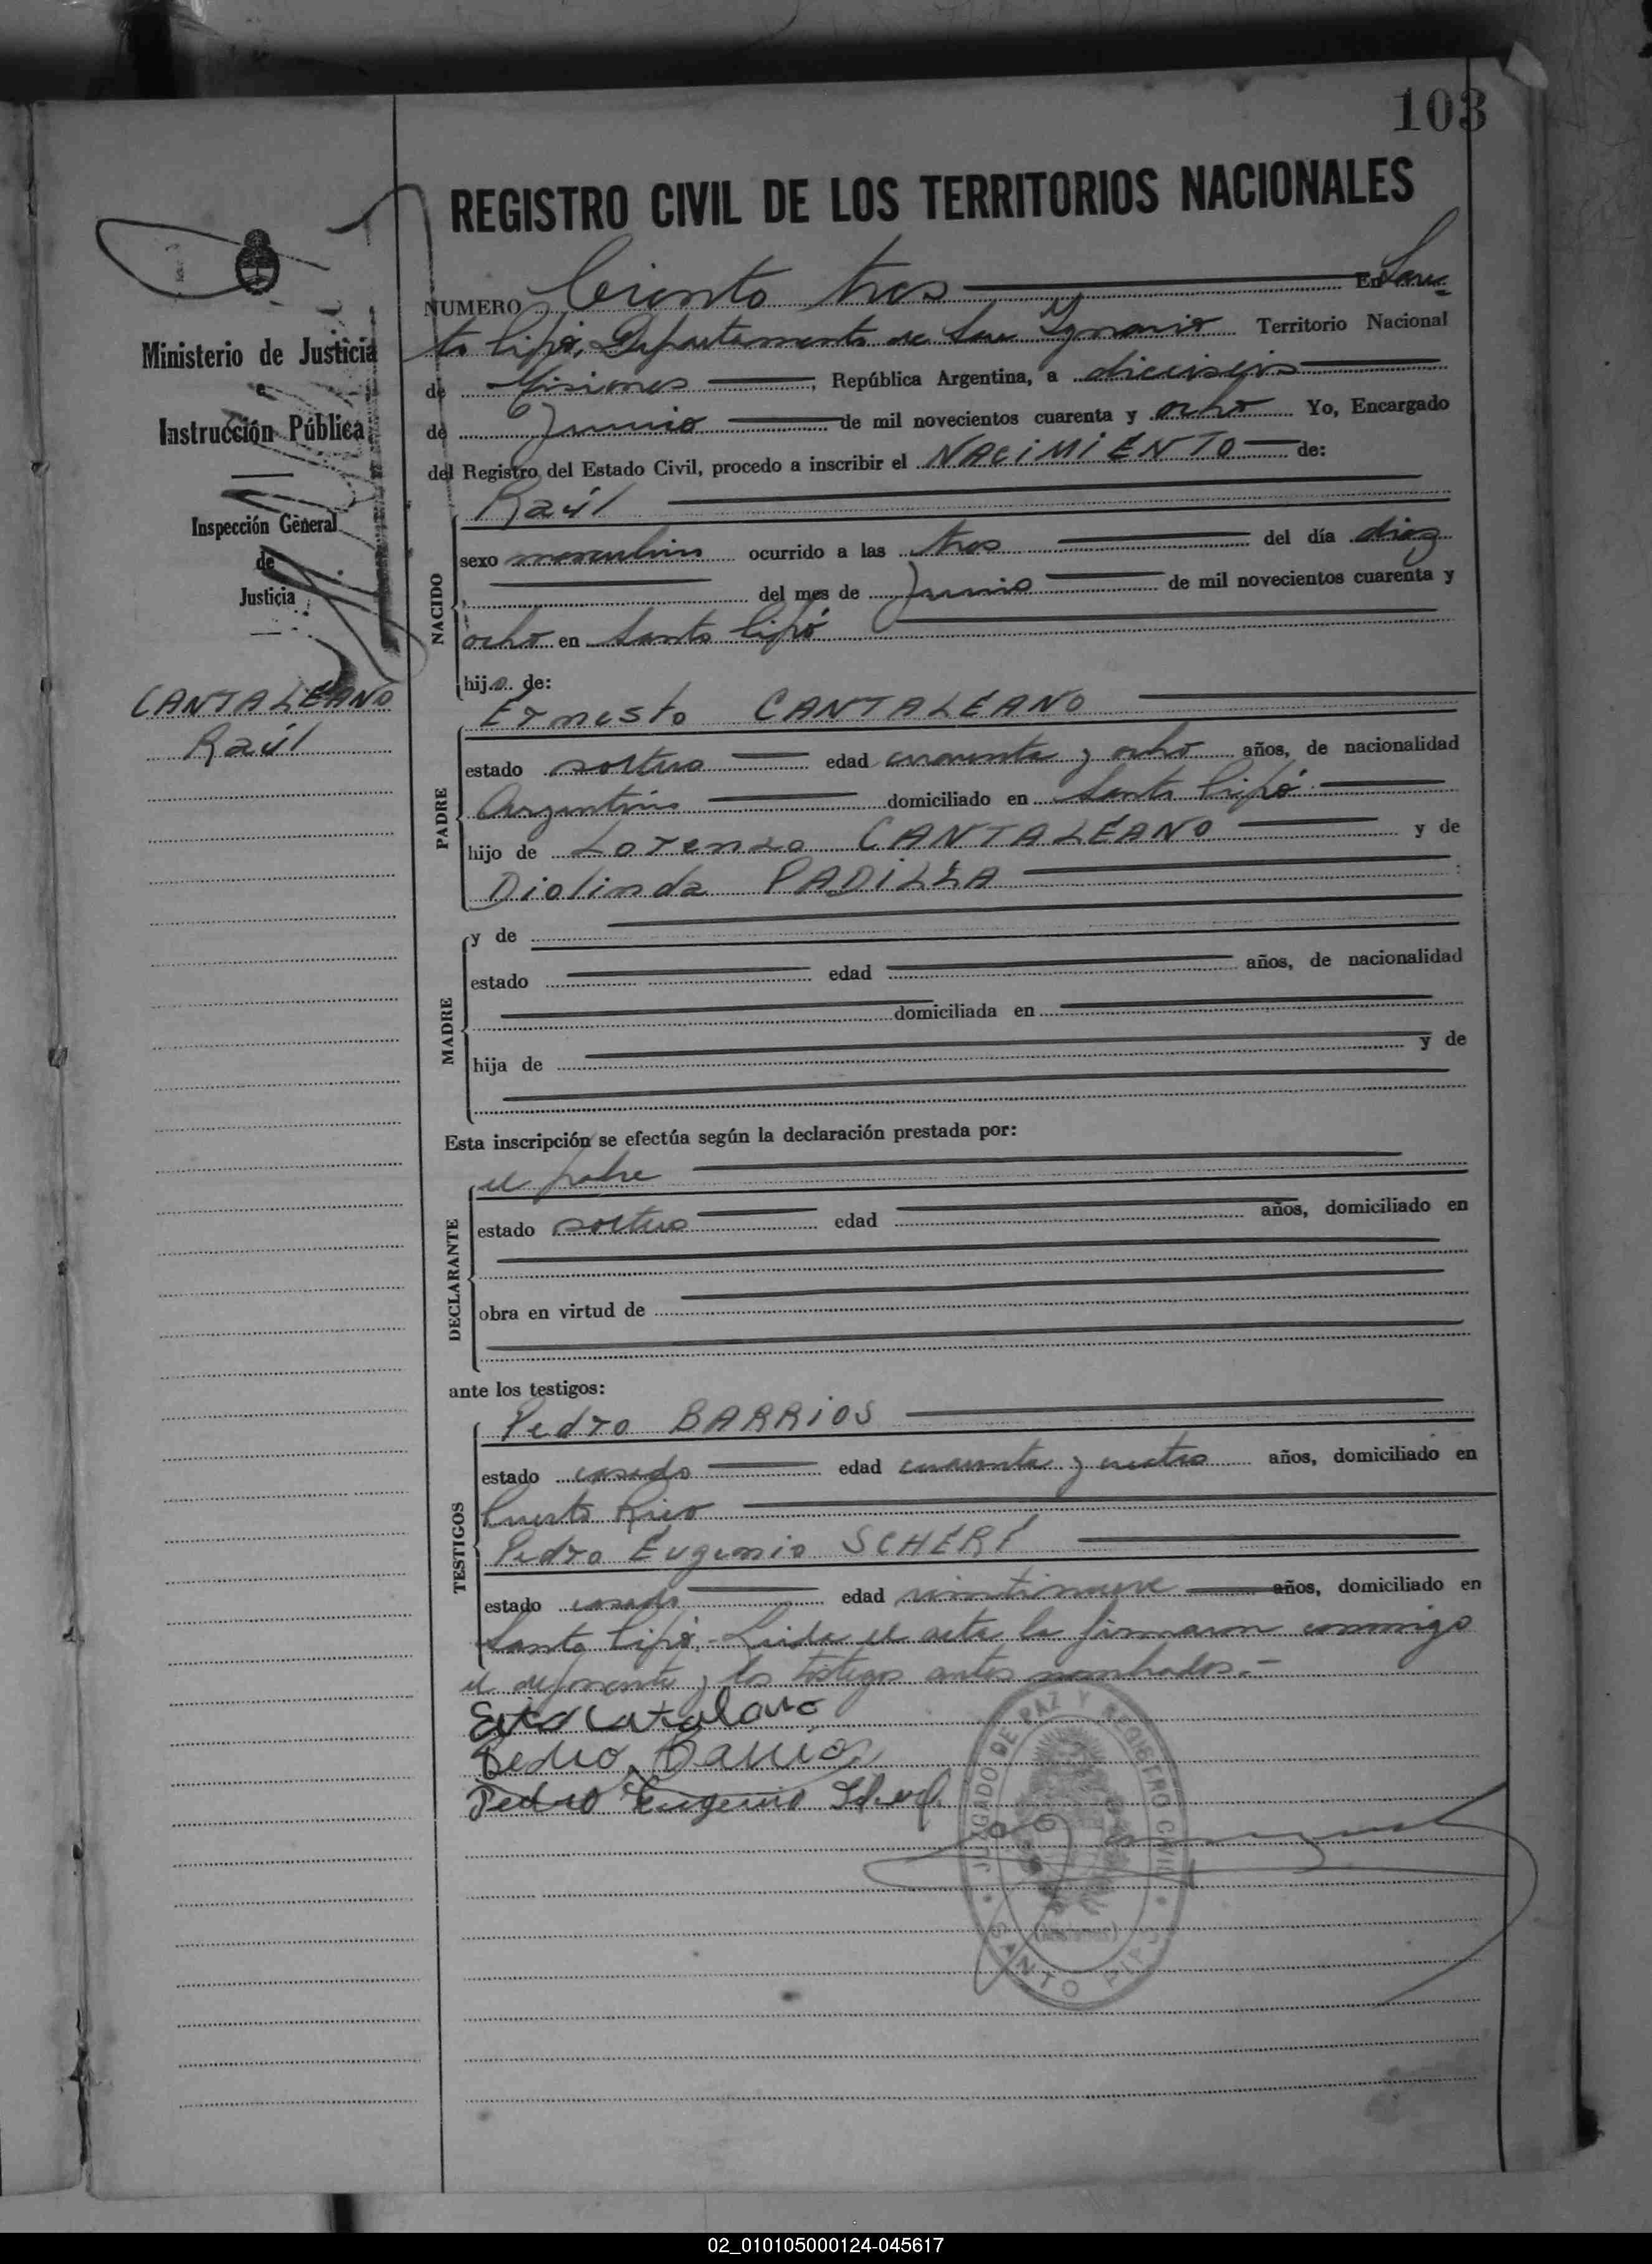 103
REGISTRO CIVIL DE LOS TERRITORIOS NACIONALES
NUMERO Ciento tres En San-
to Pipó, Departamento de San Ygnacio Territorio Nacional
de Misiones, República Argentina, a dieciseis
de Junio de mil novecientos cuarenta y ocho Yo, Encargado
del Registro del Estado Civil, procedo a inscribir el NACIMIENTO de:
Ministerio de Justicia
e
Instrucción Pública
Inspección General
de
Justicia
CANTALEANO
Raúl
NACIDO
Raúl
sexo masculino ocurrido a las tres del día diez
del mes de Junio de mil novecientos cuarenta y
ocho en Santo Pipó
hijo de:
PADRE
Ernesto CANTALEANO
estado soltero edad cuarenta y ocho años, de nacionalidad
Argentino domiciliado en Santo Pipó
hijo de Lorenzo CANTALEANO y de
Diolinda PADILLA
MADRE
y de
estado edad años, de nacionalidad
domiciliada en
hija de y de
Esta inscripción se efectúa según la declaración prestada por:
DECLARANTE
el padre
estado soltero edad años, domiciliado en
obra en virtud de
ante los testigos:
TESTIGOS
Pedro BARRIOS
estado casado edad cuarenta y cuatro años, domiciliado en
Puerto Rico
Pedro Eugenio SCHERF
estado casado edad veintinueve años, domiciliado en
Santo Pipó.- Leida el acta la firmaron conmigo
el deponente y los testigos antes nombrados.-
Pedro Barrios
Pedro Eugenio Scherf
JUZGADO DE PAZ Y REGISTRO CIVIL
(Misiones)
SANTO PIPÓ
02_010105000124-045617